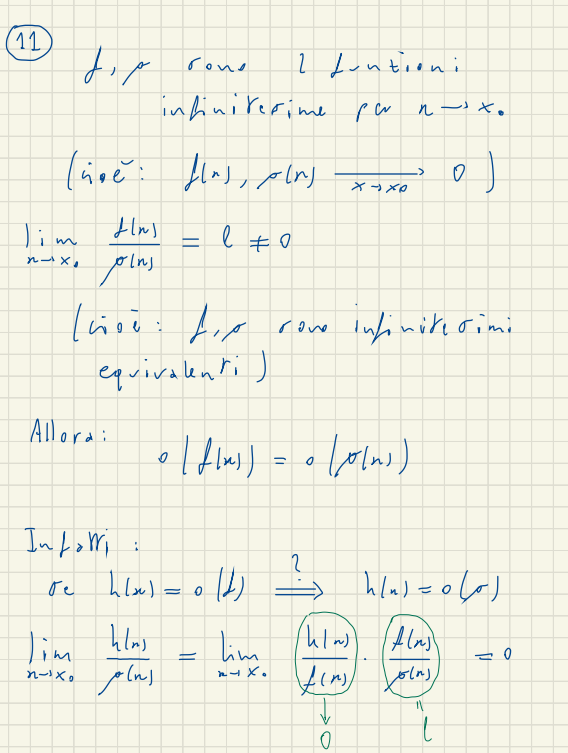 11
f, g sono 2 funzioni
infinitesime per x → x₀
(cioè: f(x), g(x) ⟶ 0)
x→x₀
lim f(x)/g(x) = l ≠ 0
x→x₀
(cioè: f, g sono infinitesimi
equivalenti)
Allora:
o(f(x)) = o(g(x))
Infatti:
se h(x) = o(f) ⟹ h(x) = o(g)
?
lim h(x)/g(x) = lim h(x)/f(x) · f(x)/g(x) = 0
x→x₀ x→x₀
↓ "
0 l